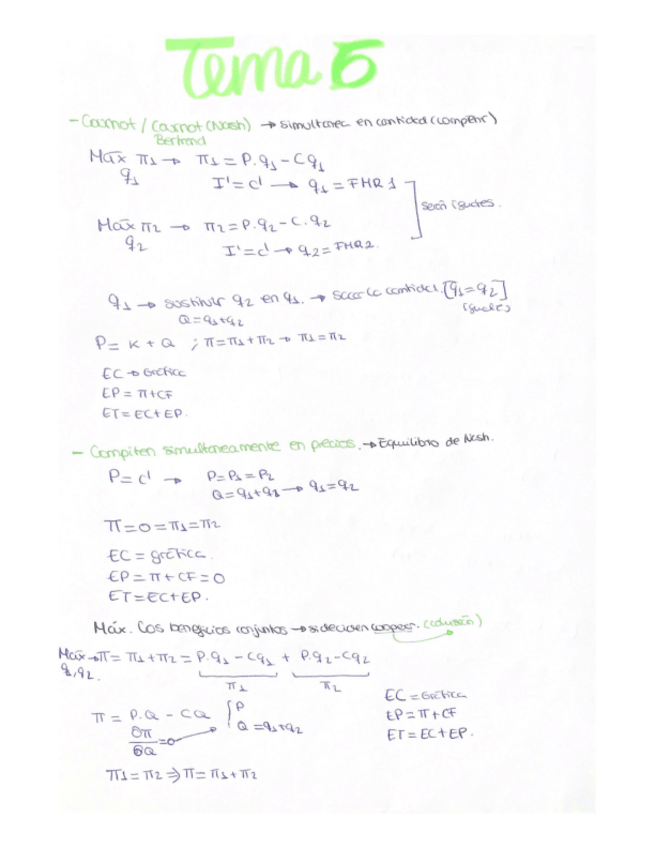 Tema 5
- Cournot / Cournot (Nash) → simultanea en cantidad (compiten)
Bertrand
Máx π1 → π1 = P.q1 - Cq1
q1
I' = c' → q1 = FHR 1
Máx π2 → π2 = P.q2 - C.q2
q2
I' = c' → q2 = FHR2.
seán iguales.
q1 → sustituir q2 en q1. → sacar la cantidad. [q1 = q2]
(iguales)
Q = q1+q2
P = K + Q ; π = π1 + π2 → π1 = π2
EC → Gráfica
EP = π + CF
ET = EC + EP.
- Compiten simultaneamente en precios. → Equilibro de Nash.
P = c' → P = P1 = P2
Q = q1+q2 → q1 = q2
π = 0 = π1 = π2
EC = gráfica.
EP = π + CF = 0
ET = EC + EP.
Máx. Los beneficios conjuntos → si deciden cooperar. (colusión)
Máx → π = π1 + π2 = P.q1 - Cq1 + P.q2 - Cq2
q1, q2.
π1 π2
π = P.Q - CQ { P
Q = q1+q2
δπ
δQ = 0
π1 = π2 ⇒ π = π1 + π2
EC = Gráfica
EP = π + CF
ET = EC + EP.